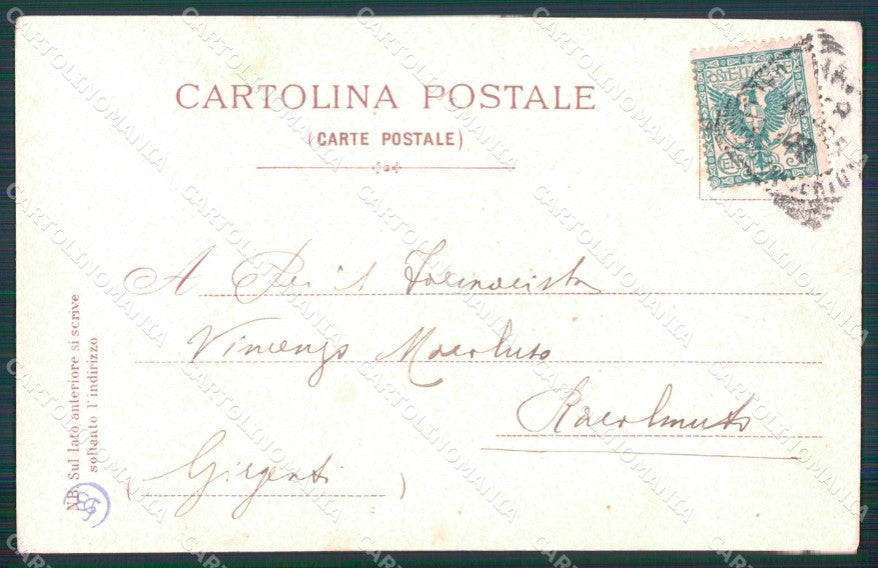 CARTOLINA POSTALE
(CARTE POSTALE)
A
Farmacista
Vincenzo Macaluso
Racalmuto
(Girgenti)
NB. Sul lato anteriore si scrive
soltanto l'indirizzo
CARTOLINOMANIA